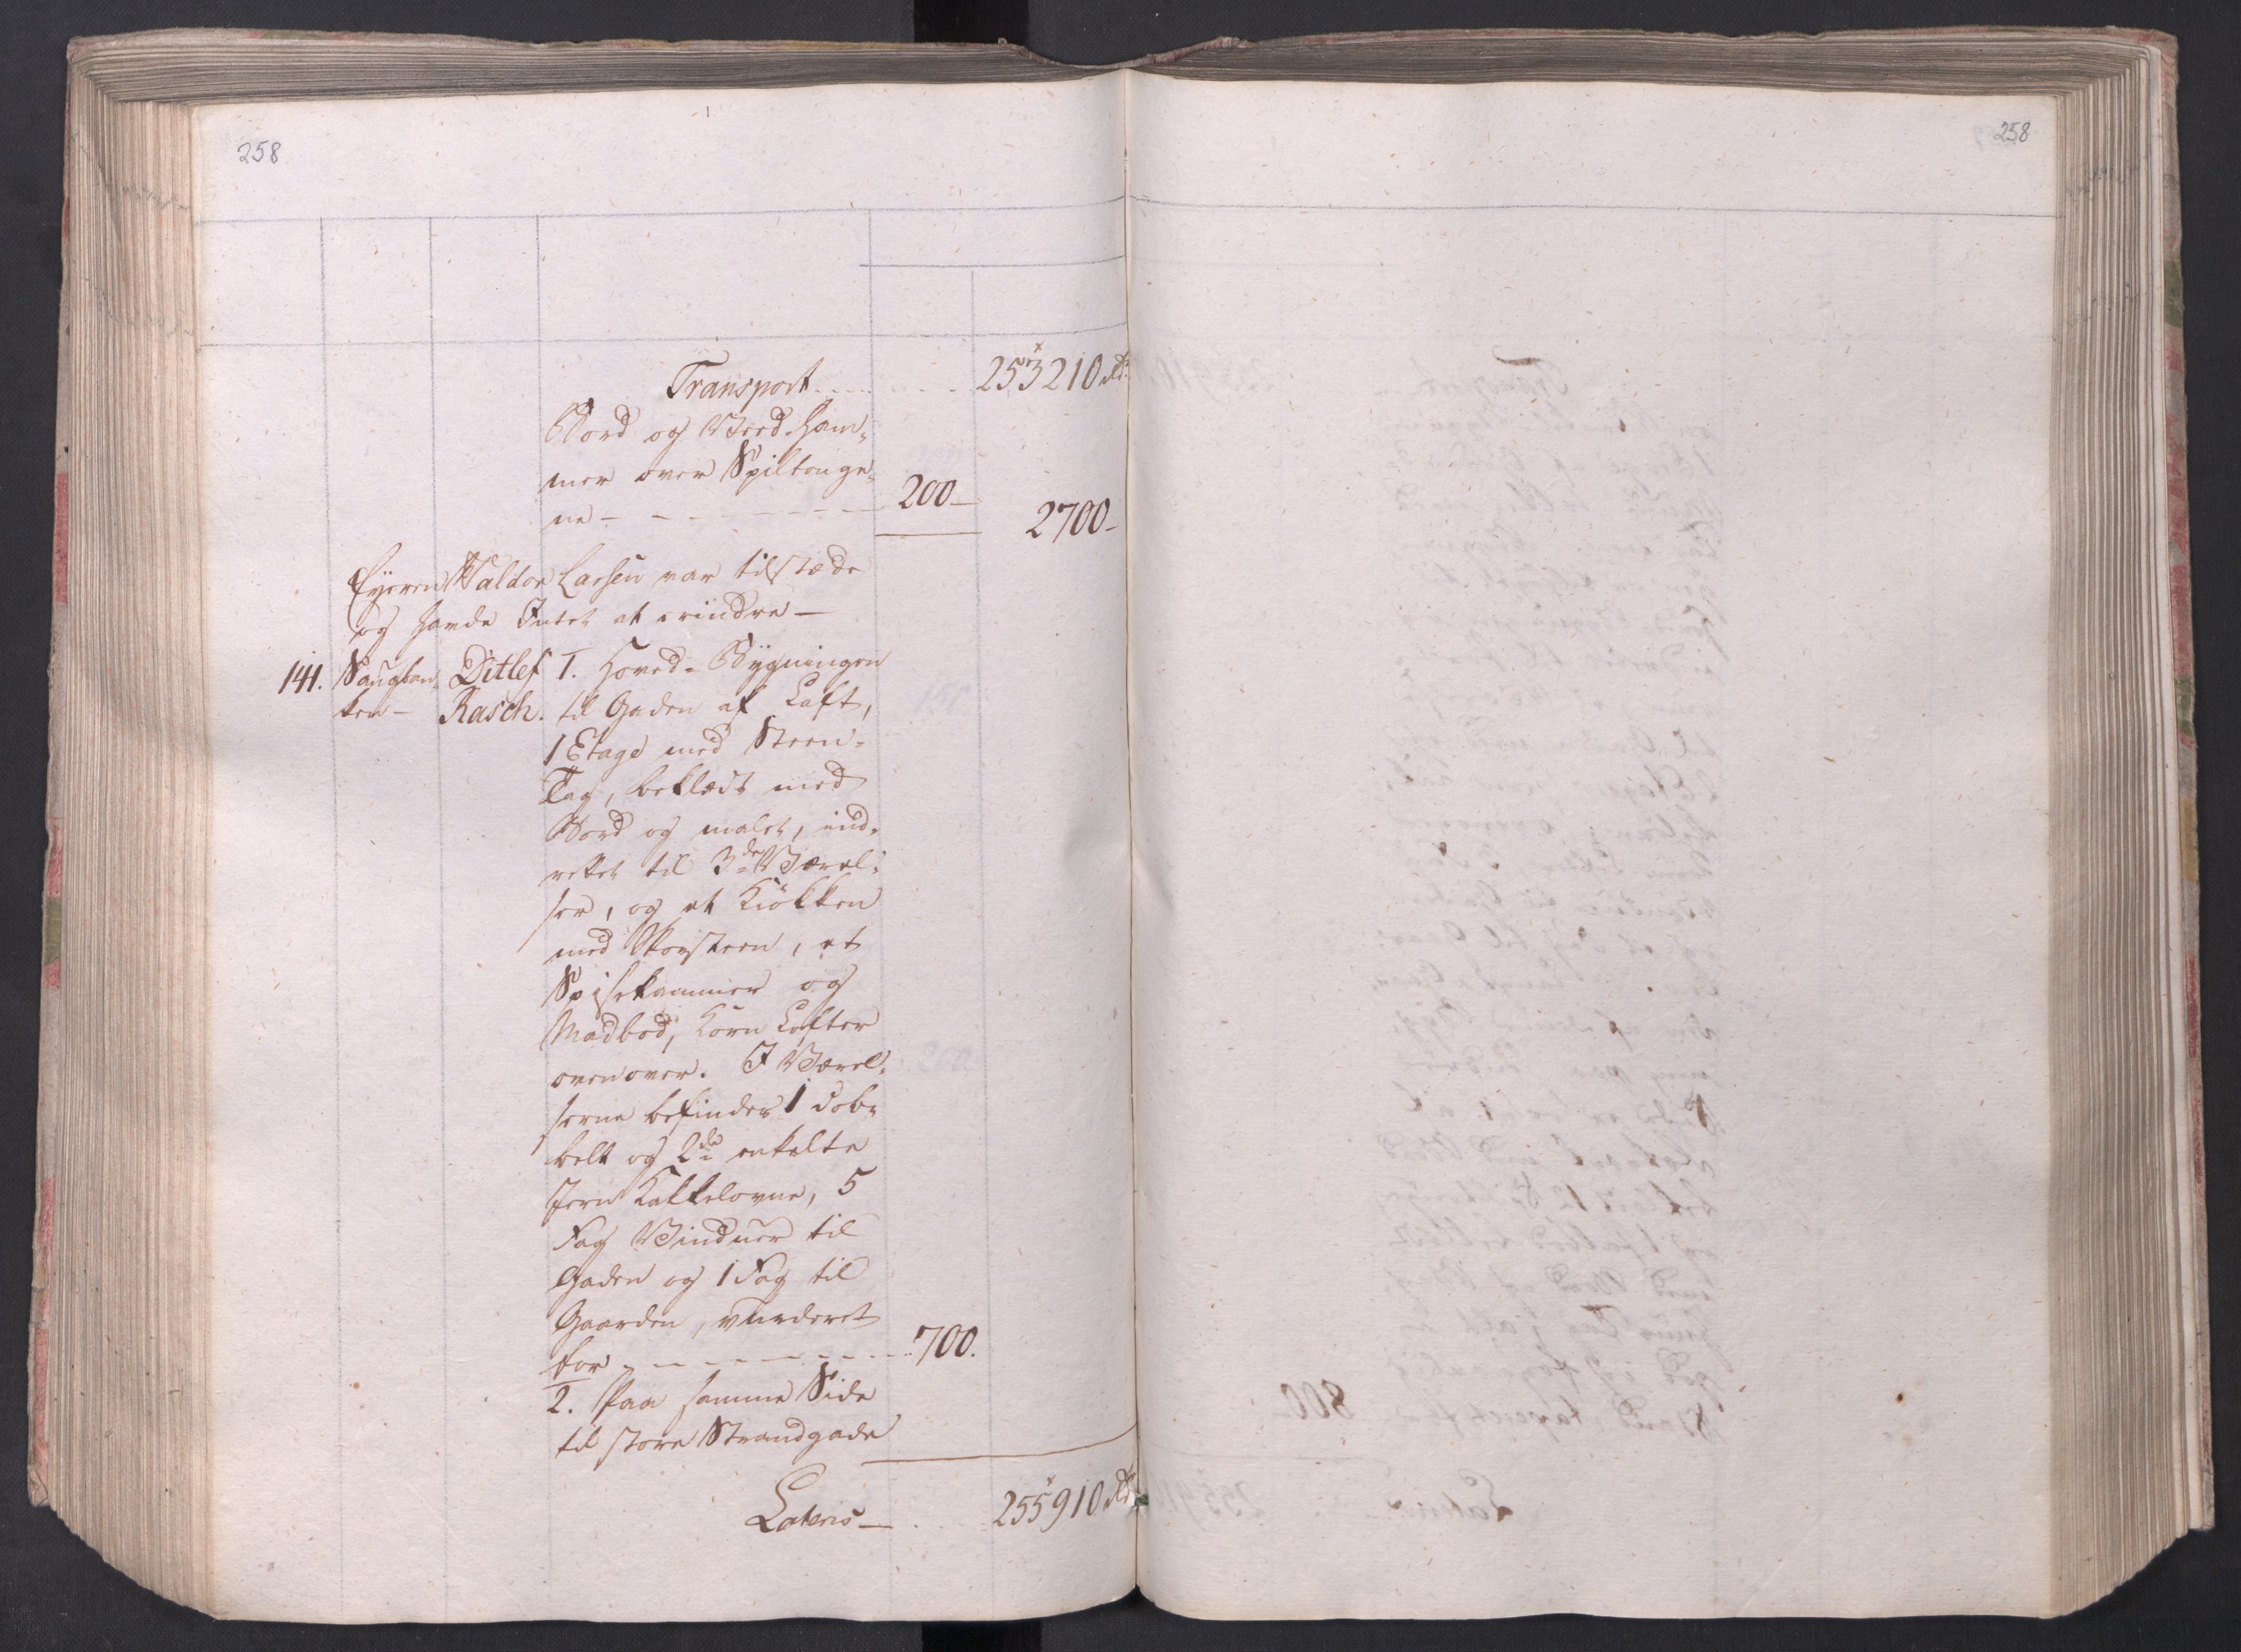 258
258
Transport . . . . . 253210 Rd.
Bord og Veed-Ham¬
mer over Spiltouge¬
ne — — — — 200 — 2700 —
Eyeren Walder Larsen var tilstæde
og havde Intet at erindre —
141. Saugban¬ Ditlef 1. Hoved-Bygningen
ken — Rasch. til Gaden af Laft,
1 Etage med Steen¬
Tag, beklædt med
Bord og malet, ind¬
rettet til 3de Værel¬
ser, og et Kiökken
med Skorsteen, et
Spisekammer og
Madbod, Korn Lofter
ovenover. I Værel¬
serne befindes 1 dob¬
belt og 2de enkelte
Jern Kakkelovne, 5
Fag Vinduer til
Gaden og 1 Fag til
Gaarden, vurderet
for — — — — 700.
2. Paa samme Side
til store Strandgade
Lateris — . . 255910 Rd.